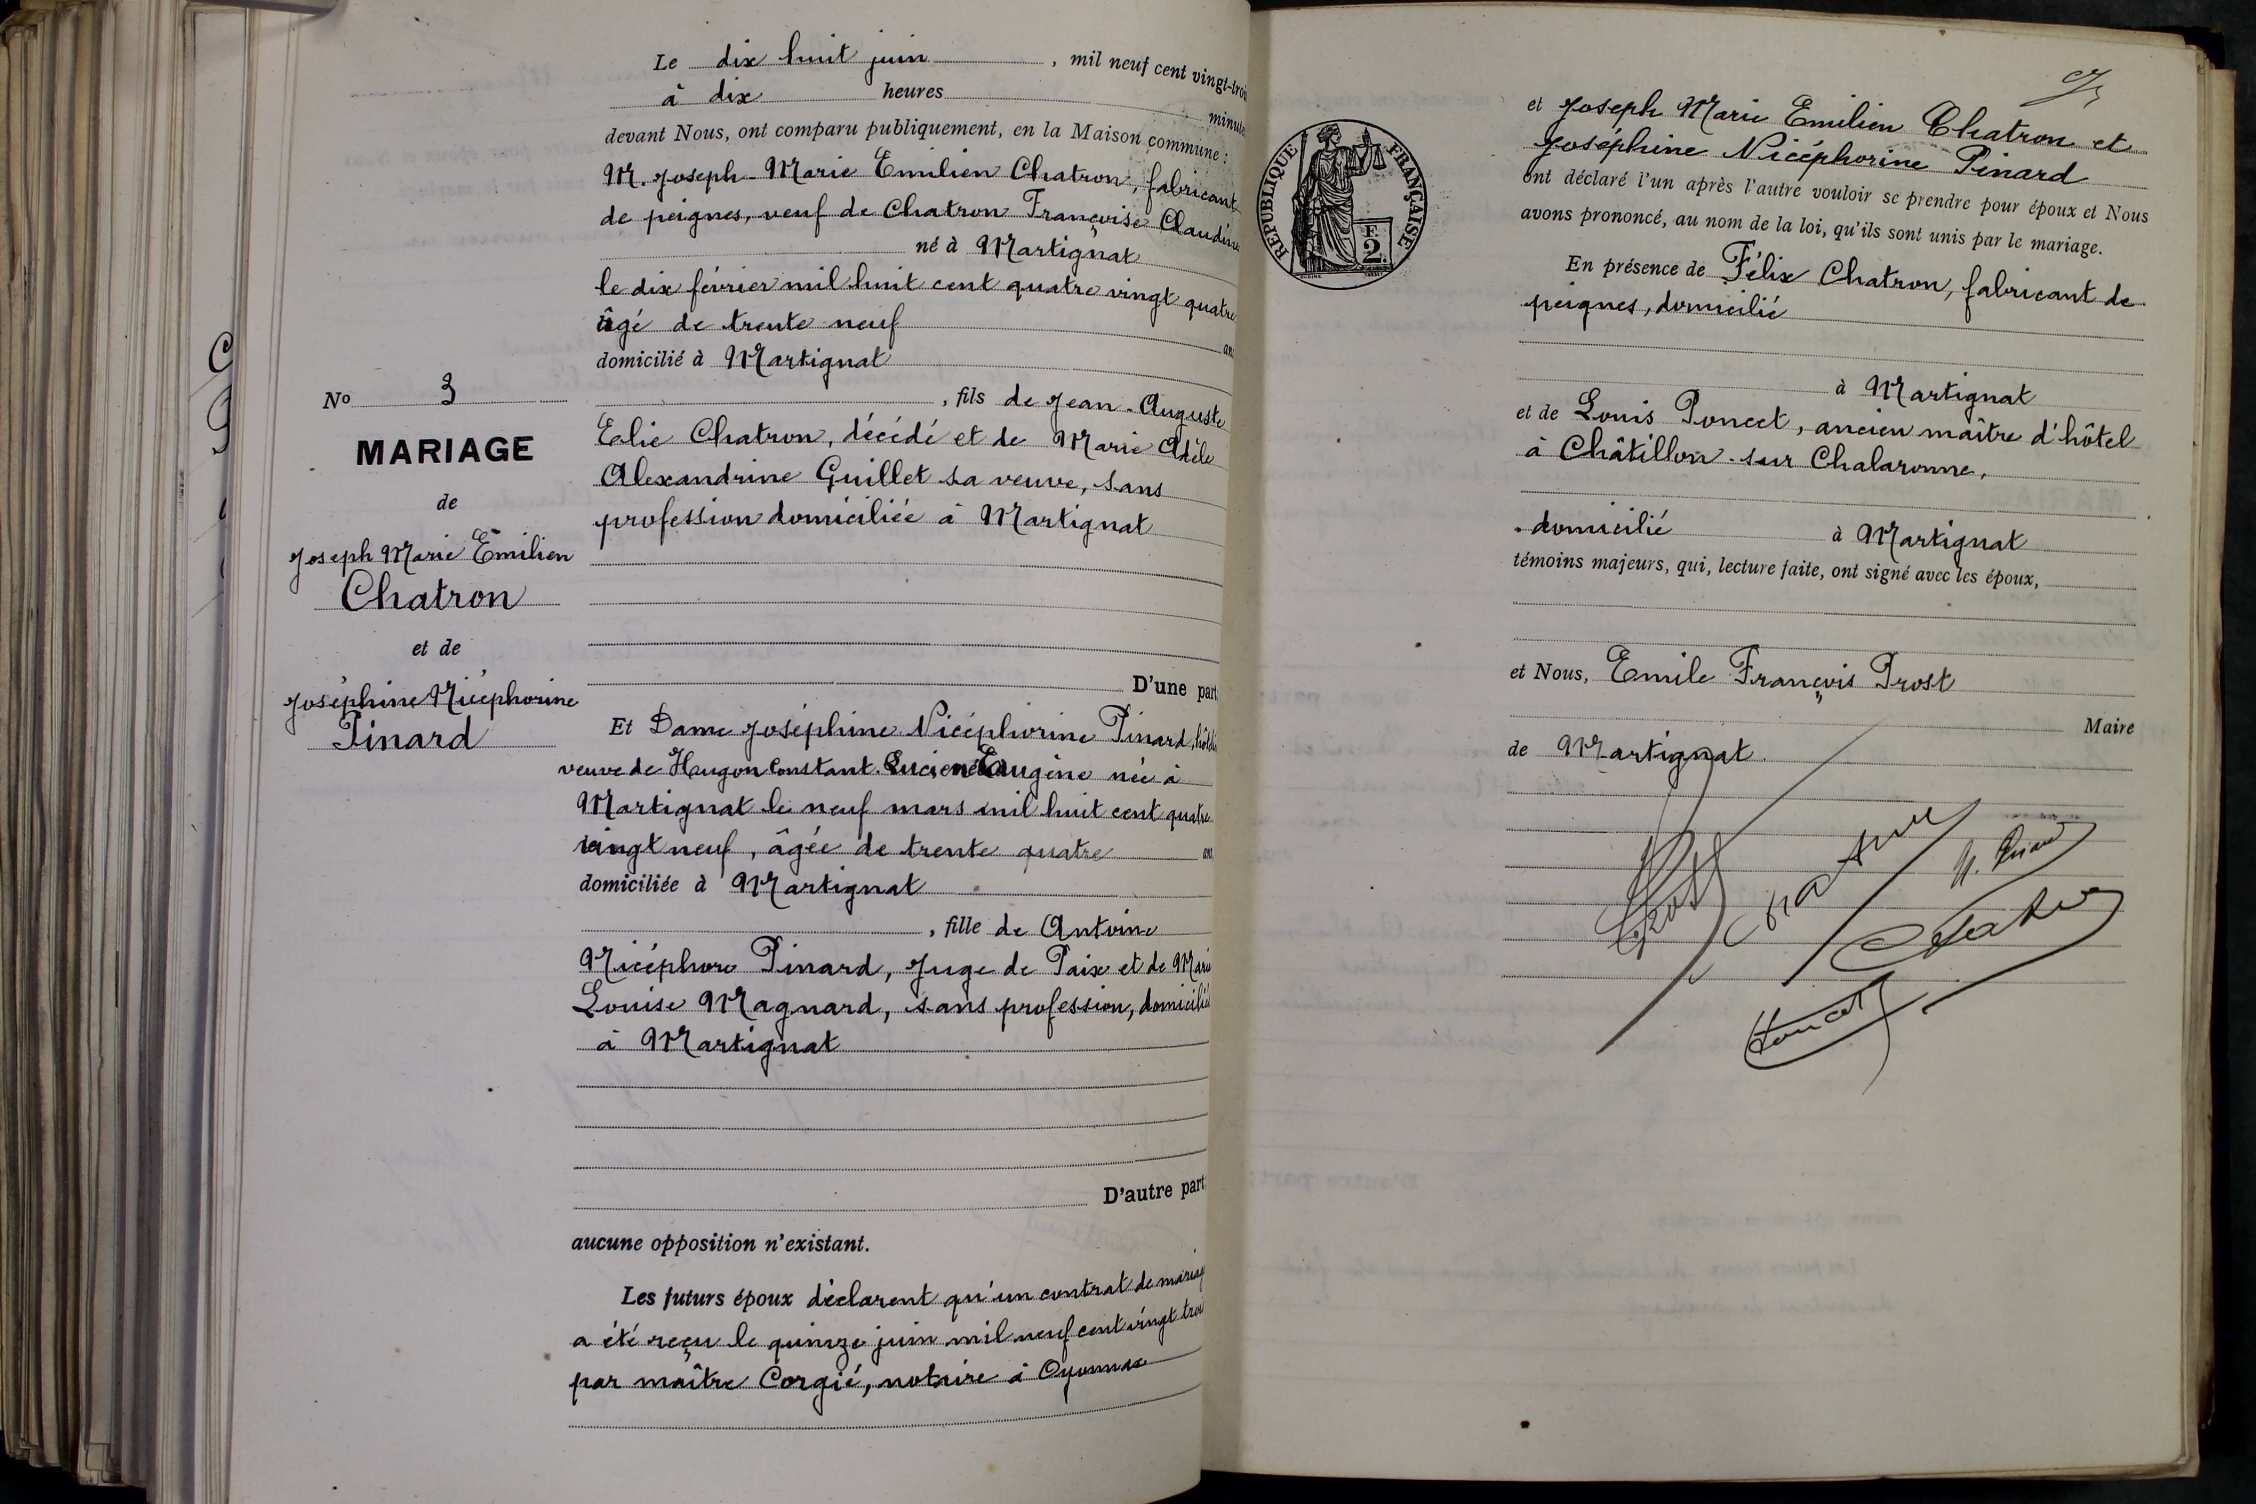 Le dix huit juin, mil neuf cent vingt-trois
à dix heures minutes
devant Nous, ont comparu publiquement, en la Maison commune :
M. Joseph-Marie Emilien Chatron, fabricant
de peignes, veuf de Chatron Françoise Claudine
né à Martignat
le dix février mil huit cent quatre vingt quatre
âgé de trente neuf ans
domicilié à Martignat
, fils de Jean-Auguste
Elie Chatron, décédé et de Marie Adèle
Alexandrine Guillet sa veuve, sans
profession domiciliée à Martignat
D'une part
No 3
MARIAGE
de
Joseph Marie Emilien
Chatron
et de
Joséphine Nicéphorine
Pinard
Et Dame Joséphine Nicéphorine Pinard,
veuve de Hugon Constant Lucien Eugène née à
Martignat le neuf mars mil huit cent quatre
vingt neuf, âgée de trente quatre ans
domiciliée à Martignat
, fille de Antoine
Nicéphore Pinard, Juge de Paix et de Marie
Louise Magnard, sans profession, domiciliés
à Martignat
D'autre part
aucune opposition n'existant.
Les futurs époux déclarent qu'un contrat de mariage
a été reçu le quinze juin mil neuf cent vingt trois
par maître Corgié, notaire à Oyonnax
RÉPUBLIQUE FRANÇAISE
F.
2.
et Joseph Marie Emilien Chatron et
Joséphine Nicéphorine Pinard
ont déclaré l'un après l'autre vouloir se prendre pour époux et Nous
avons prononcé, au nom de la loi, qu'ils sont unis par le mariage.
En présence de Félix Chatron, fabricant de
peignes, domicilié
à Martignat
et de Louis Poncet, ancien maître d'hôtel
à Châtillon-sur Chalaronne,
domicilié à Martignat
témoins majeurs, qui, lecture faite, ont signé avec les époux,
et Nous, Emile François Prost
Maire
de Martignat
Prost
Chatron
N. Pinard
Chatron
Poncet